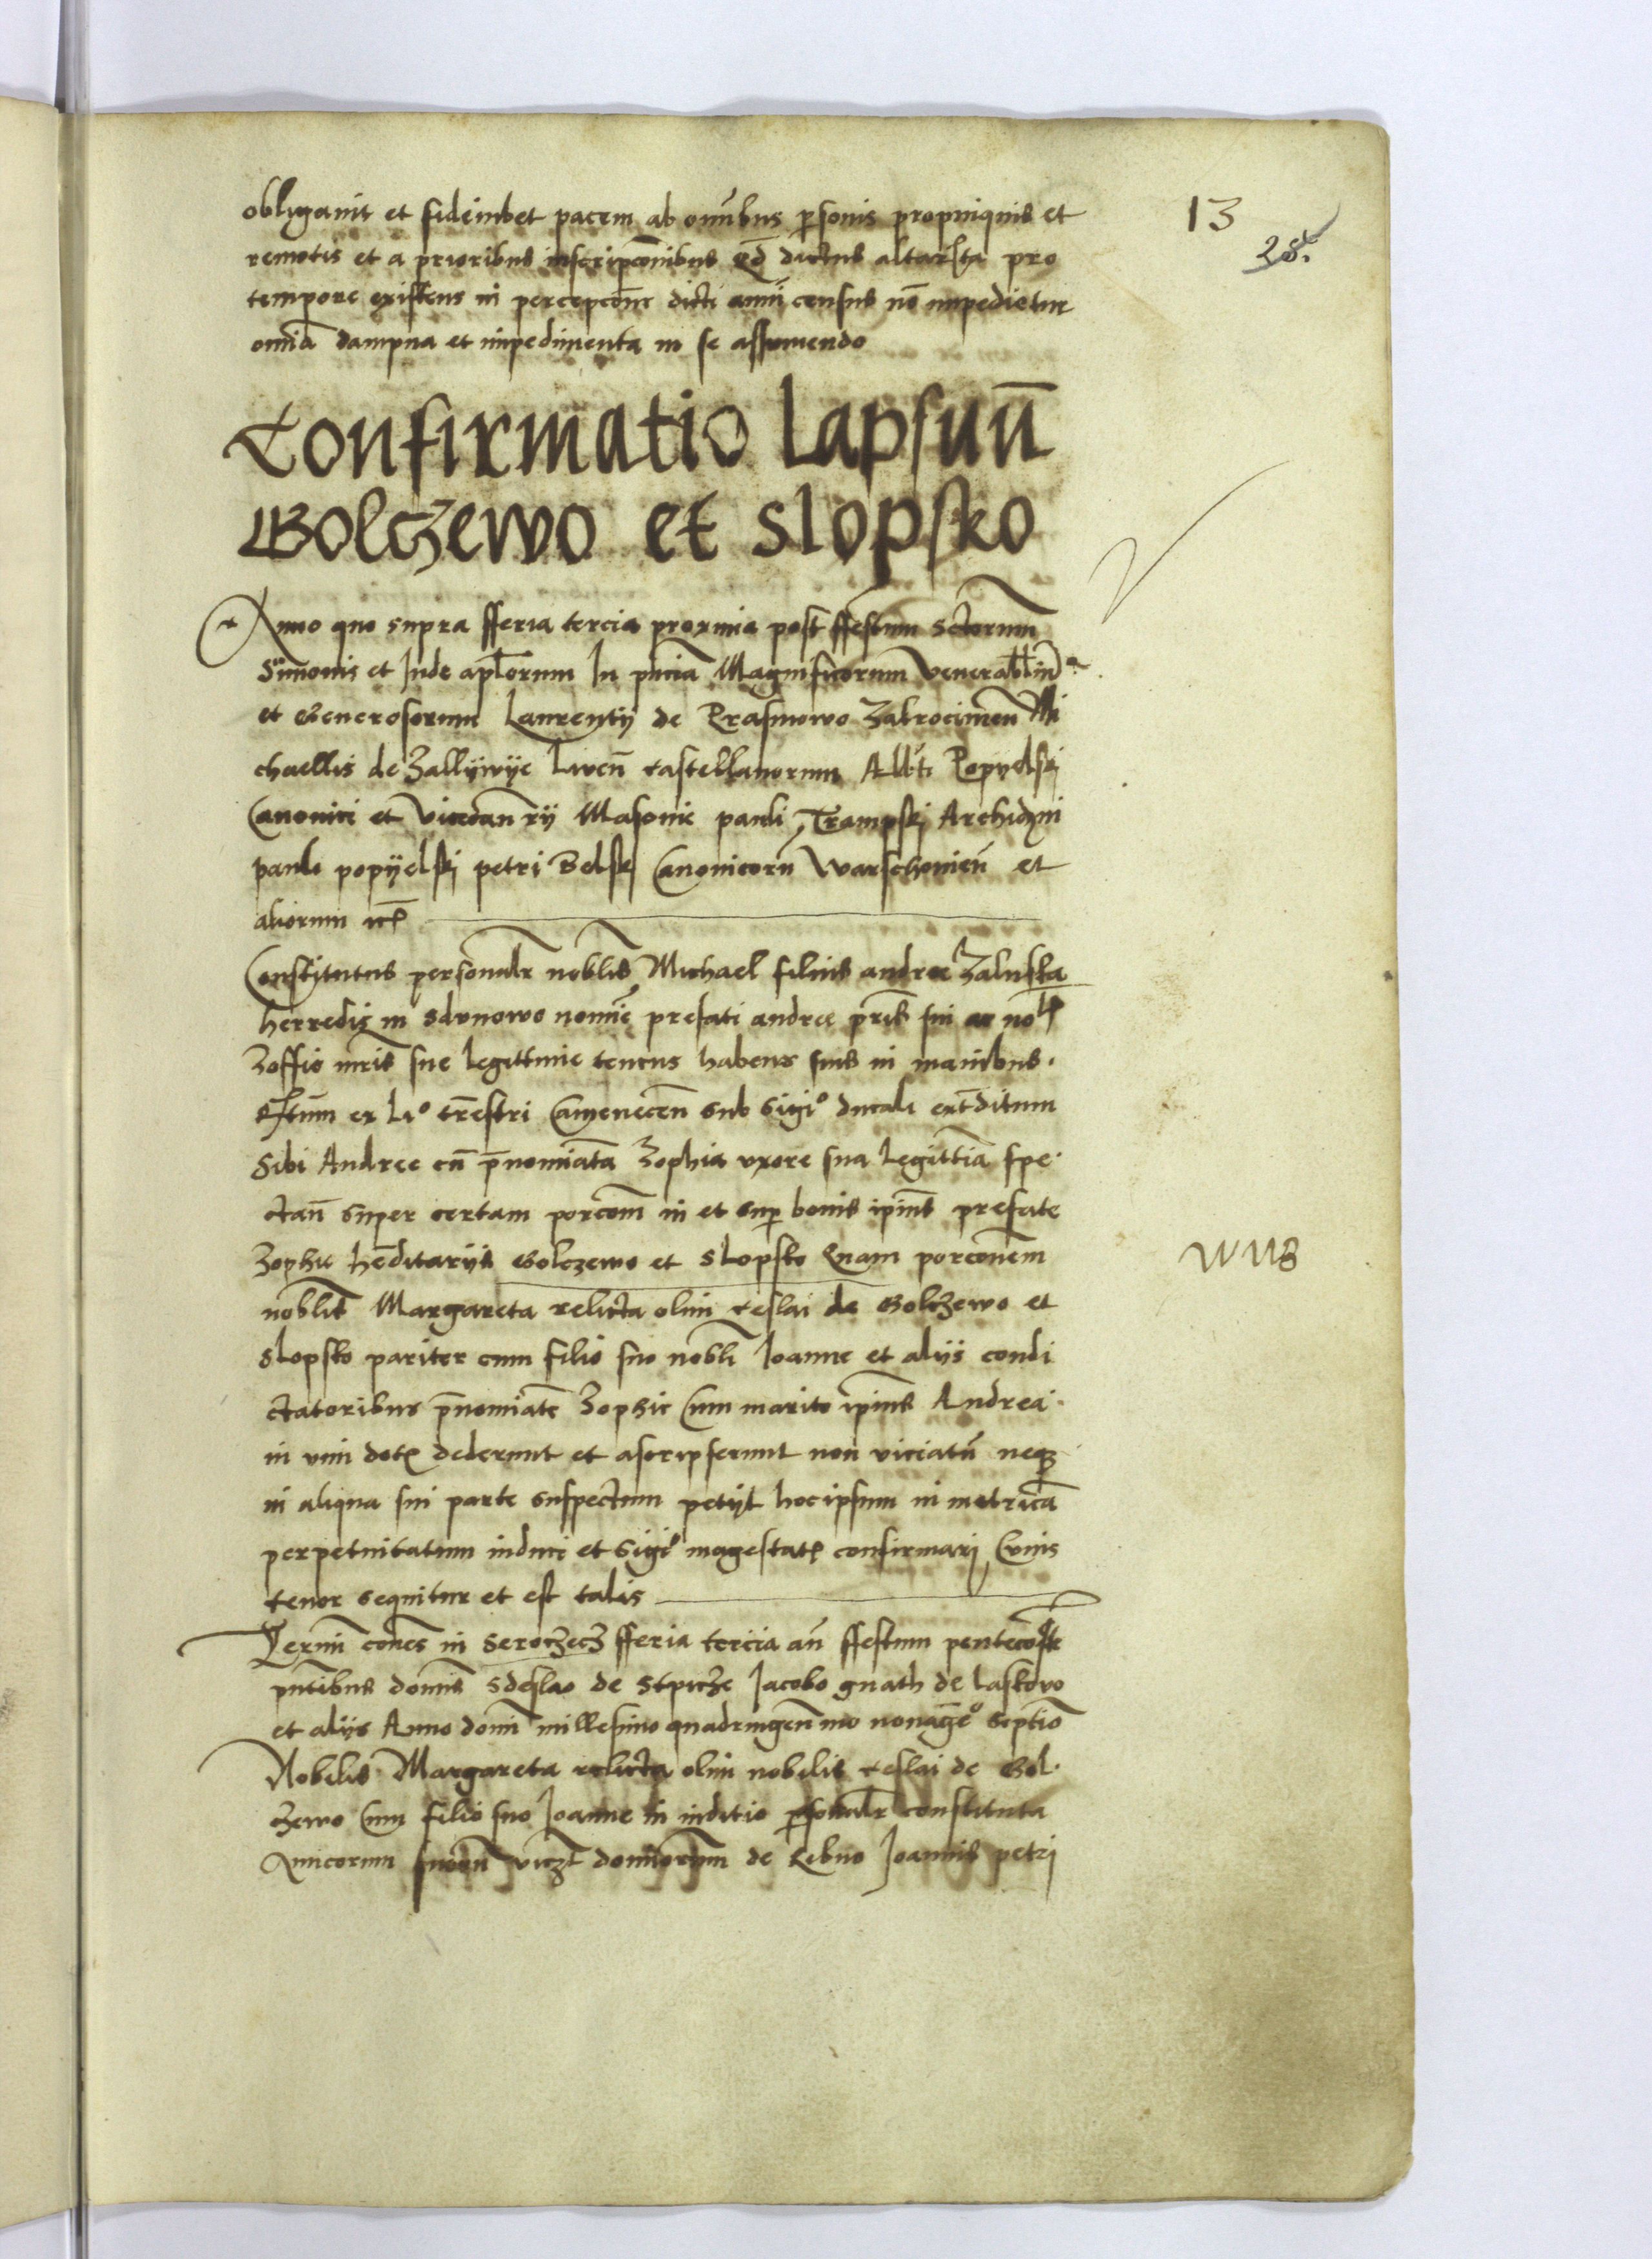 obligavit et fideiubet pacem ab omībus ꝑsonis propinquis et
remotis et a prioribus inscripcōnibus qd dictus altarista pro
tempore existens in percepcōne dicti annī census nō impedietur
omīa dampna et impedimenta in se assumendo
Confirmatio Lapsuum̄
Golczewo et slopsko
Anno quo supra fferia tercia proxima post ffestum Sctorum
Simonis et Iude aplorum In pn̄cia Magnificorum Venerabiliū
et Generosorum Laurentij de Prasmowo Zakrocimen Mi
chaellis de Zallywye Liven̄ castellanorum Alb̄ti Popyelskj
Canonici et Vicedan rij Masovie pauli Trampskj Archid̄ni
pauli popyelskj petri Belskj Canonicorū Warschovien̄ et
aliorum
Constitutus personalr nobilis Michael filius andree Zaluska
herredis in Sdunowo nomīe prefati andree pr̄is sui ac nobl
Zoffie mr̄is sue legittime tentus habens suis in manibus.
ex Lio tr̄estri Camenecen̄ sub sigio ducali ext̄ditum
Sibi Andree cū p̄nomīata Zophia uxore sua legittīa spe.
ctan̄ super certam porcōem in et suꝑ bonis ipīus prefate
Zophie hēditarijs Golczewo et Slopsko Quam porcōnem
nobilis Margareta relicta olim ceslai de Golczewo et
Slopsko pariter cum filio suo nobli Ioanne et alijs condi
ctatoribus p̄nomīate Zophie Cum marito ipīus Andrea.
in vim dotꝭ dederunt et ascripserunt non viciatū neqꝫ
in aliqua sui parte suspectum petijt hocipsum in metricā
perpetuitatum induci et sigio magestatꝭ confirmarj Cuius
tenor sequitur et est talis
Termī conēs in Seroczech fferia tercia an̄ ffestum pentecoste
pn̄tibus domīs Sdeslao de Stpicze Iacobo gnath de Laskovo
et alijs Anno domī millesimo quadringen mo nonagēo Septīo
Nobilis Margareta relicta olim nobilis ceslai de Gol.
czewo Cum filio suo Ioanne in iuditio ꝑsonalr constituta
Amicorum suorū viczt domīorum de Lebno Ioannis petri
13
28.
WUS